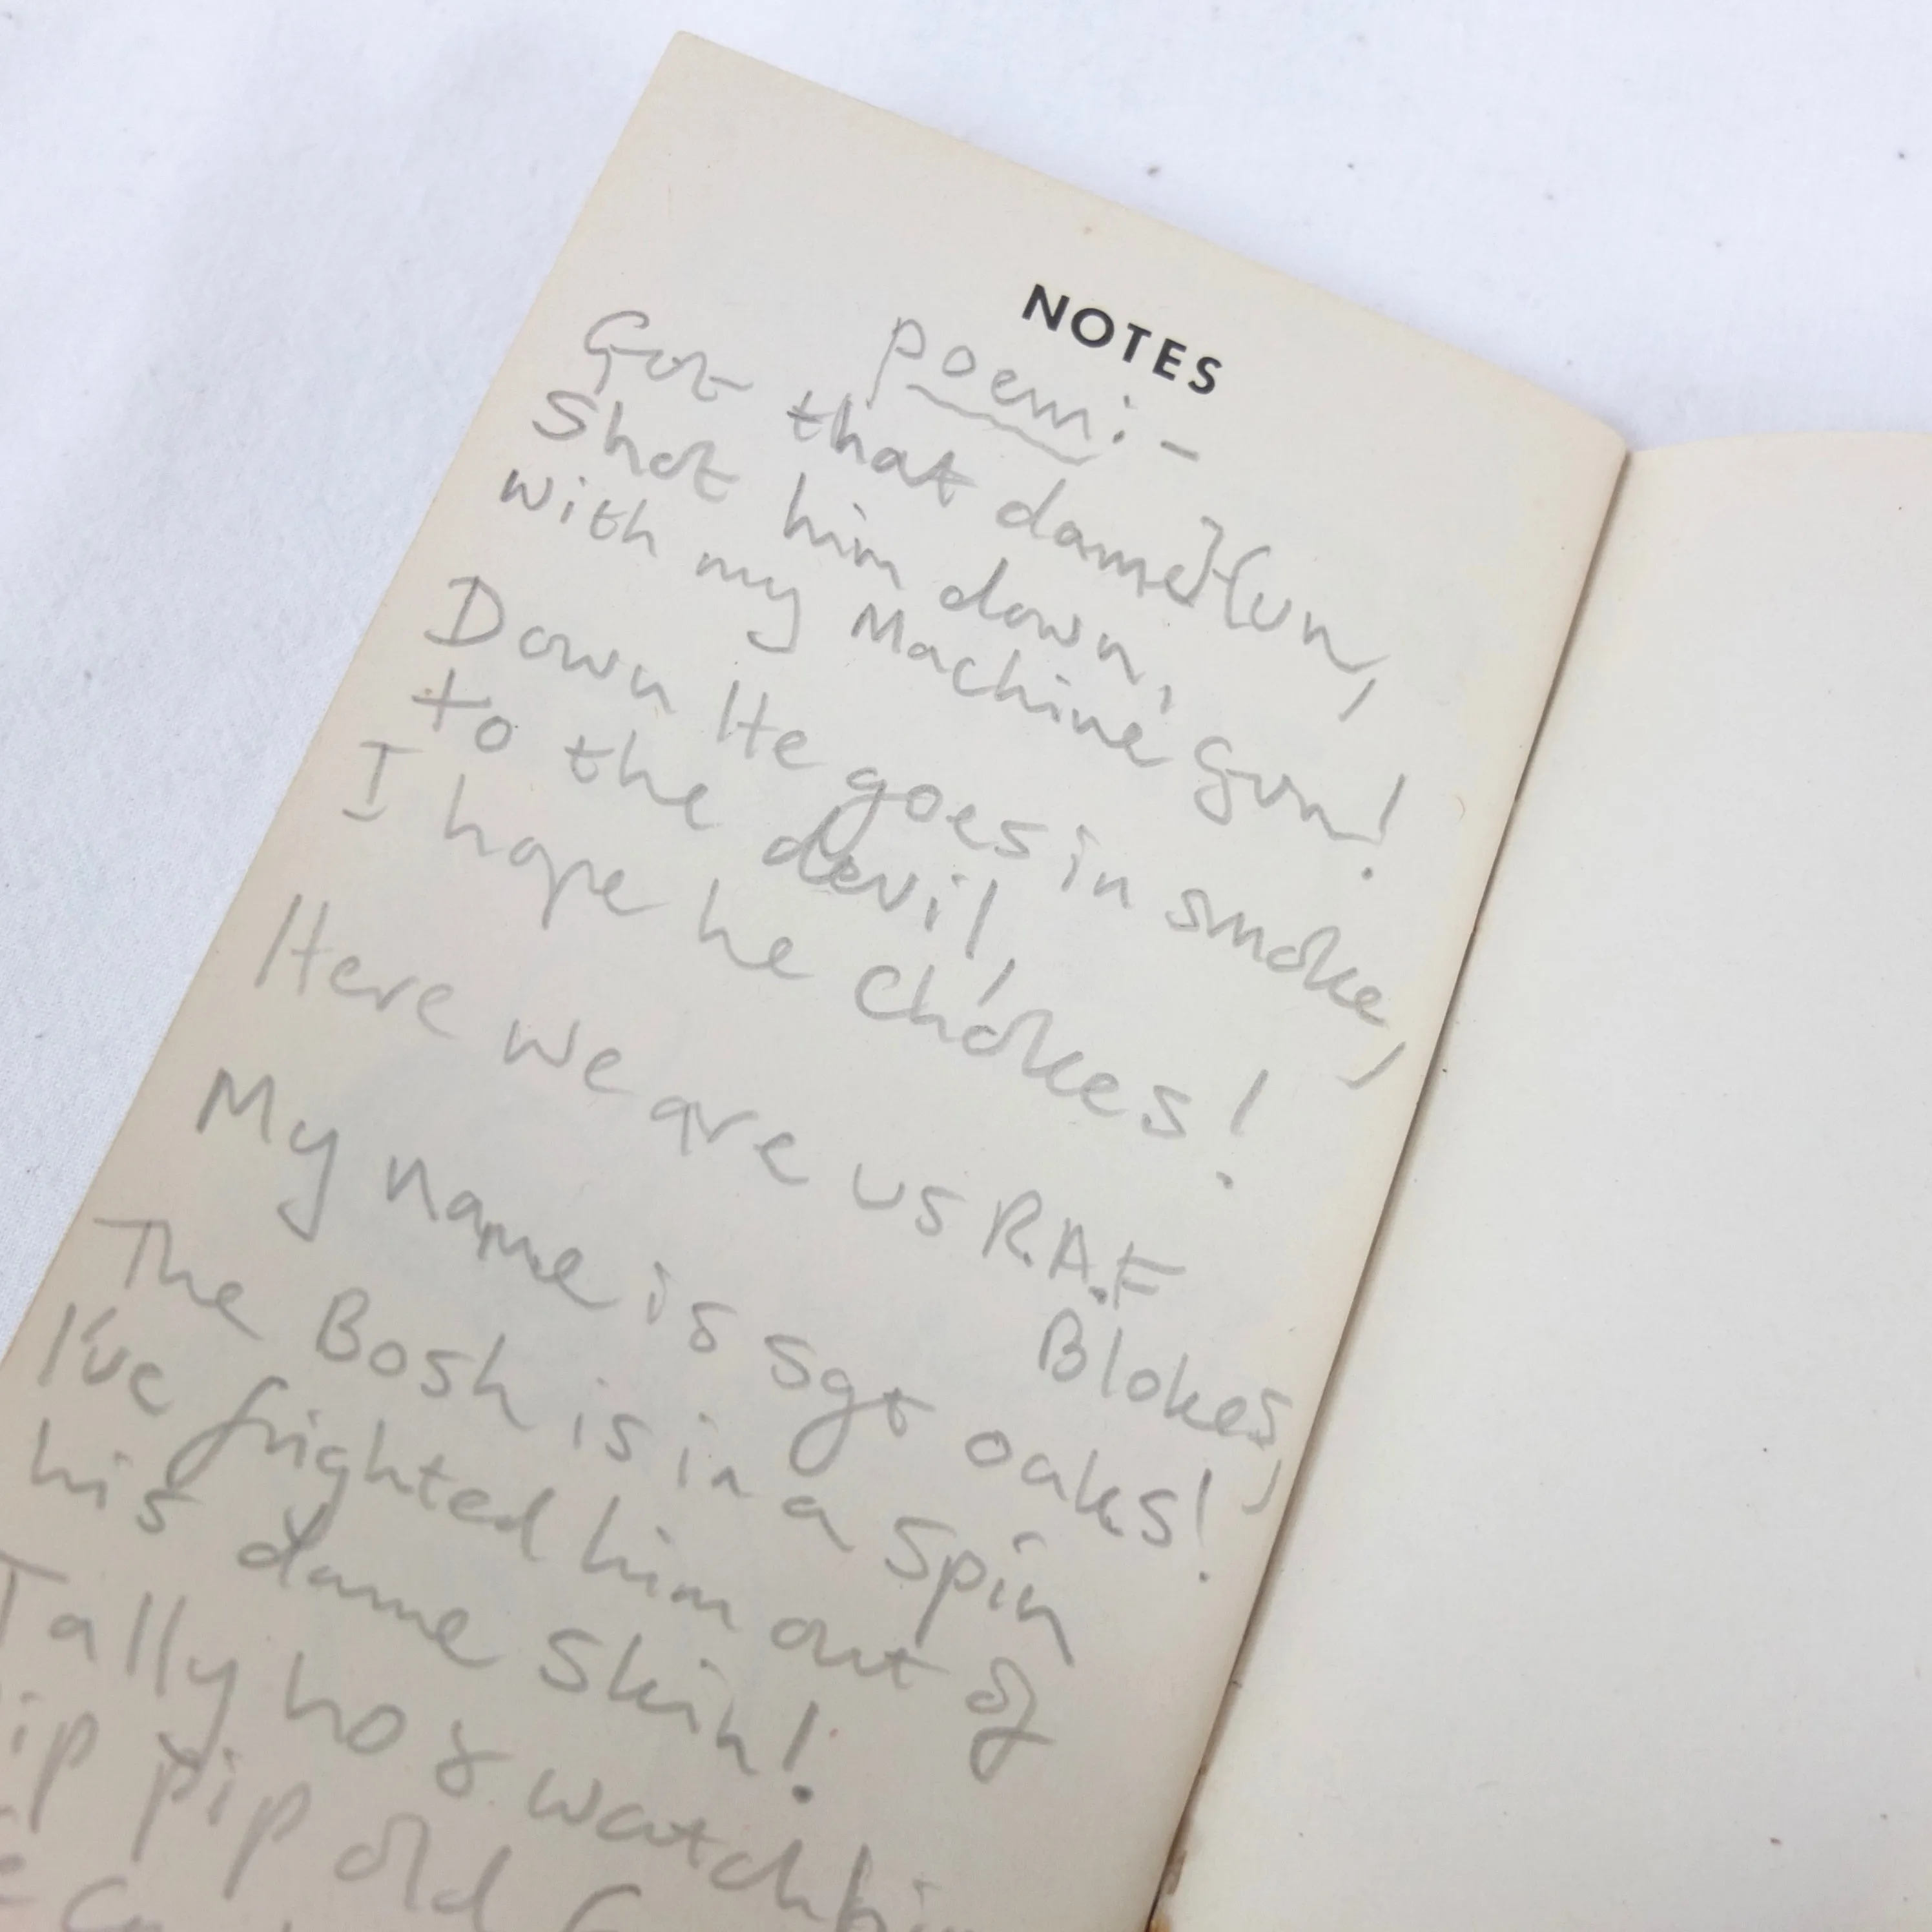 NOTES
poem:-
Got that dame Hun,
Shot him down,
with my Machine Gun!
Down He goes in smoke,
to the devil,
I hope he chokes!
Here we are us R.A.F
Blokes,
My name is sgt oaks!
The Bosh is in a spin
I've frighted him out of
his dame skin!
Tally ho & watch
pip old